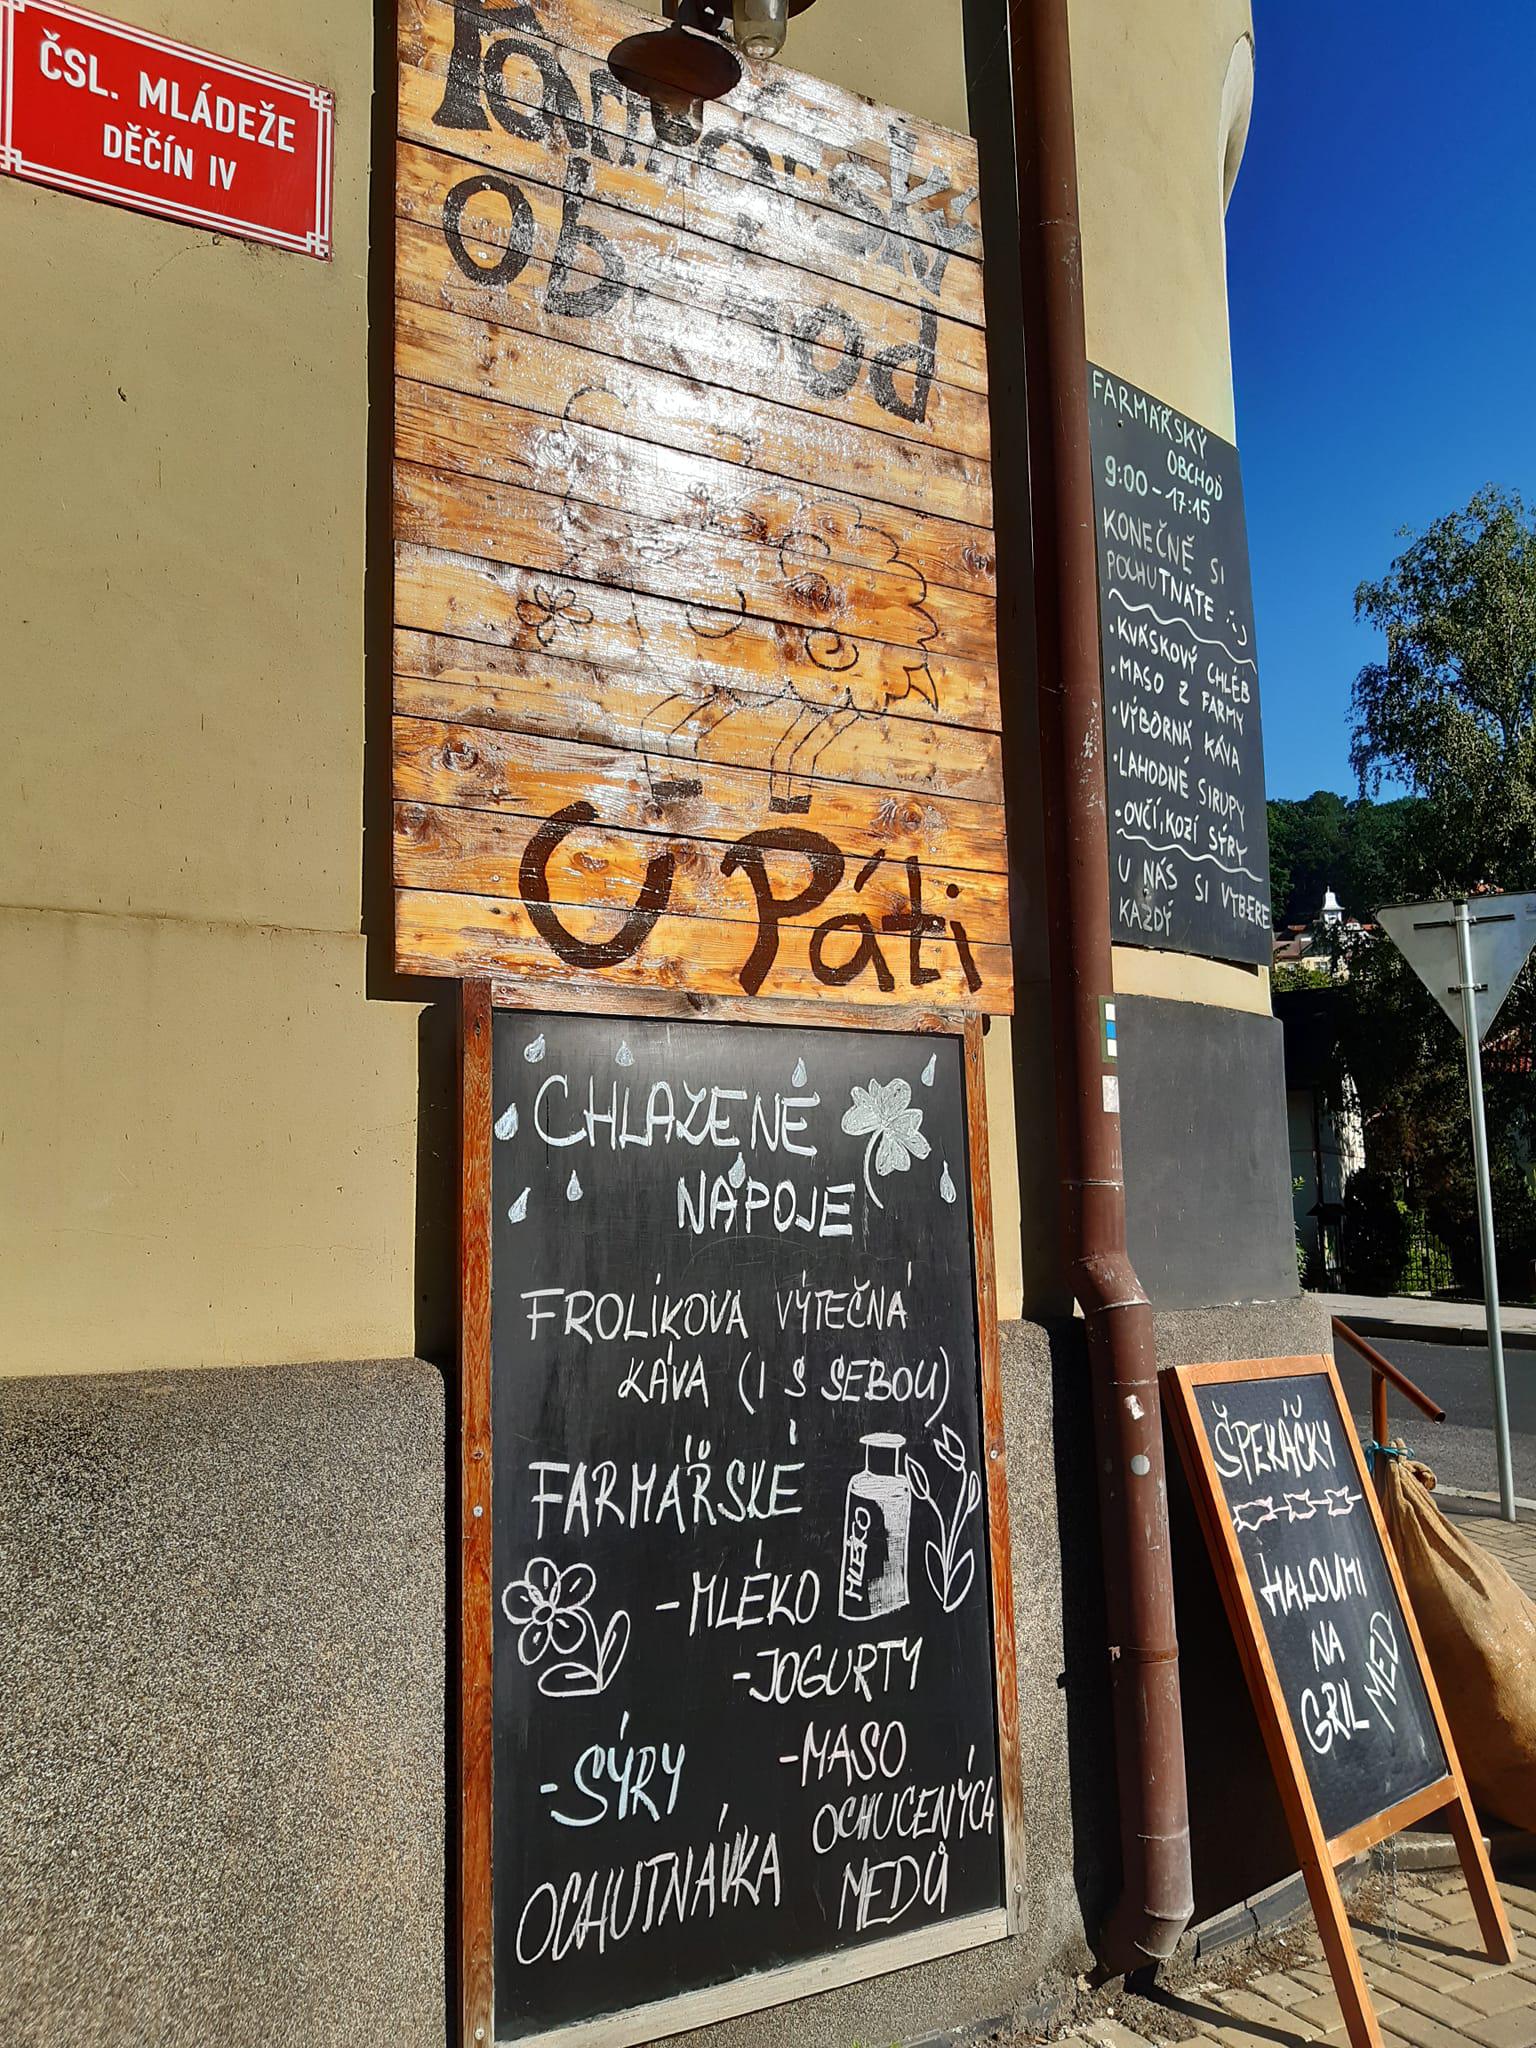 ČSL. MLÁDEŽE
DĚČÍN IV
Farmářský
Obchod
U Páti
FARMÁŘSKÝ
OBCHOD
9:00 - 17:15
KONEČNĚ SI
POCHUTNÁTE :)
• KVÁSKOVÝ CHLÉB
• MASO Z FARMY
• VÝBORNÁ KÁVA
• LAHODNÉ SIRUPY
• OVČÍ, KOZÍ SÝRY
U NÁS SI VYBERE
KAŽDÝ
CHLAZENÉ
NÁPOJE
FROLÍKOVA VÝTEČNÁ
KÁVA (I S SEBOU)
FARMÁŘSKÉ
MLÉKO
- MLÉKO
- JOGURTY
- SÝRY
- MASO
OCHUTNÁVKA
OCHUCENÝCH
MEDŮ
ŠPEKÁČKY
HALOUMI
NA
GRIL
MED